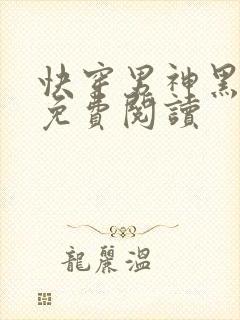 快穿男神黑
免費閱讀
龍麗溫